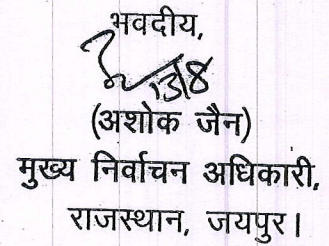 भवदीय,
13/8
(अशोक जैन)
मुख्य निर्वाचन अधिकारी,
राजस्थान, जयपुर।